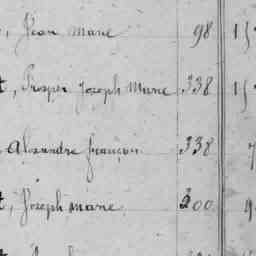 , Jean Marie 98 15
t, Prosper Joseph Marie 338 15
Alexandre françois 338 7
t, Joseph marie 200 9